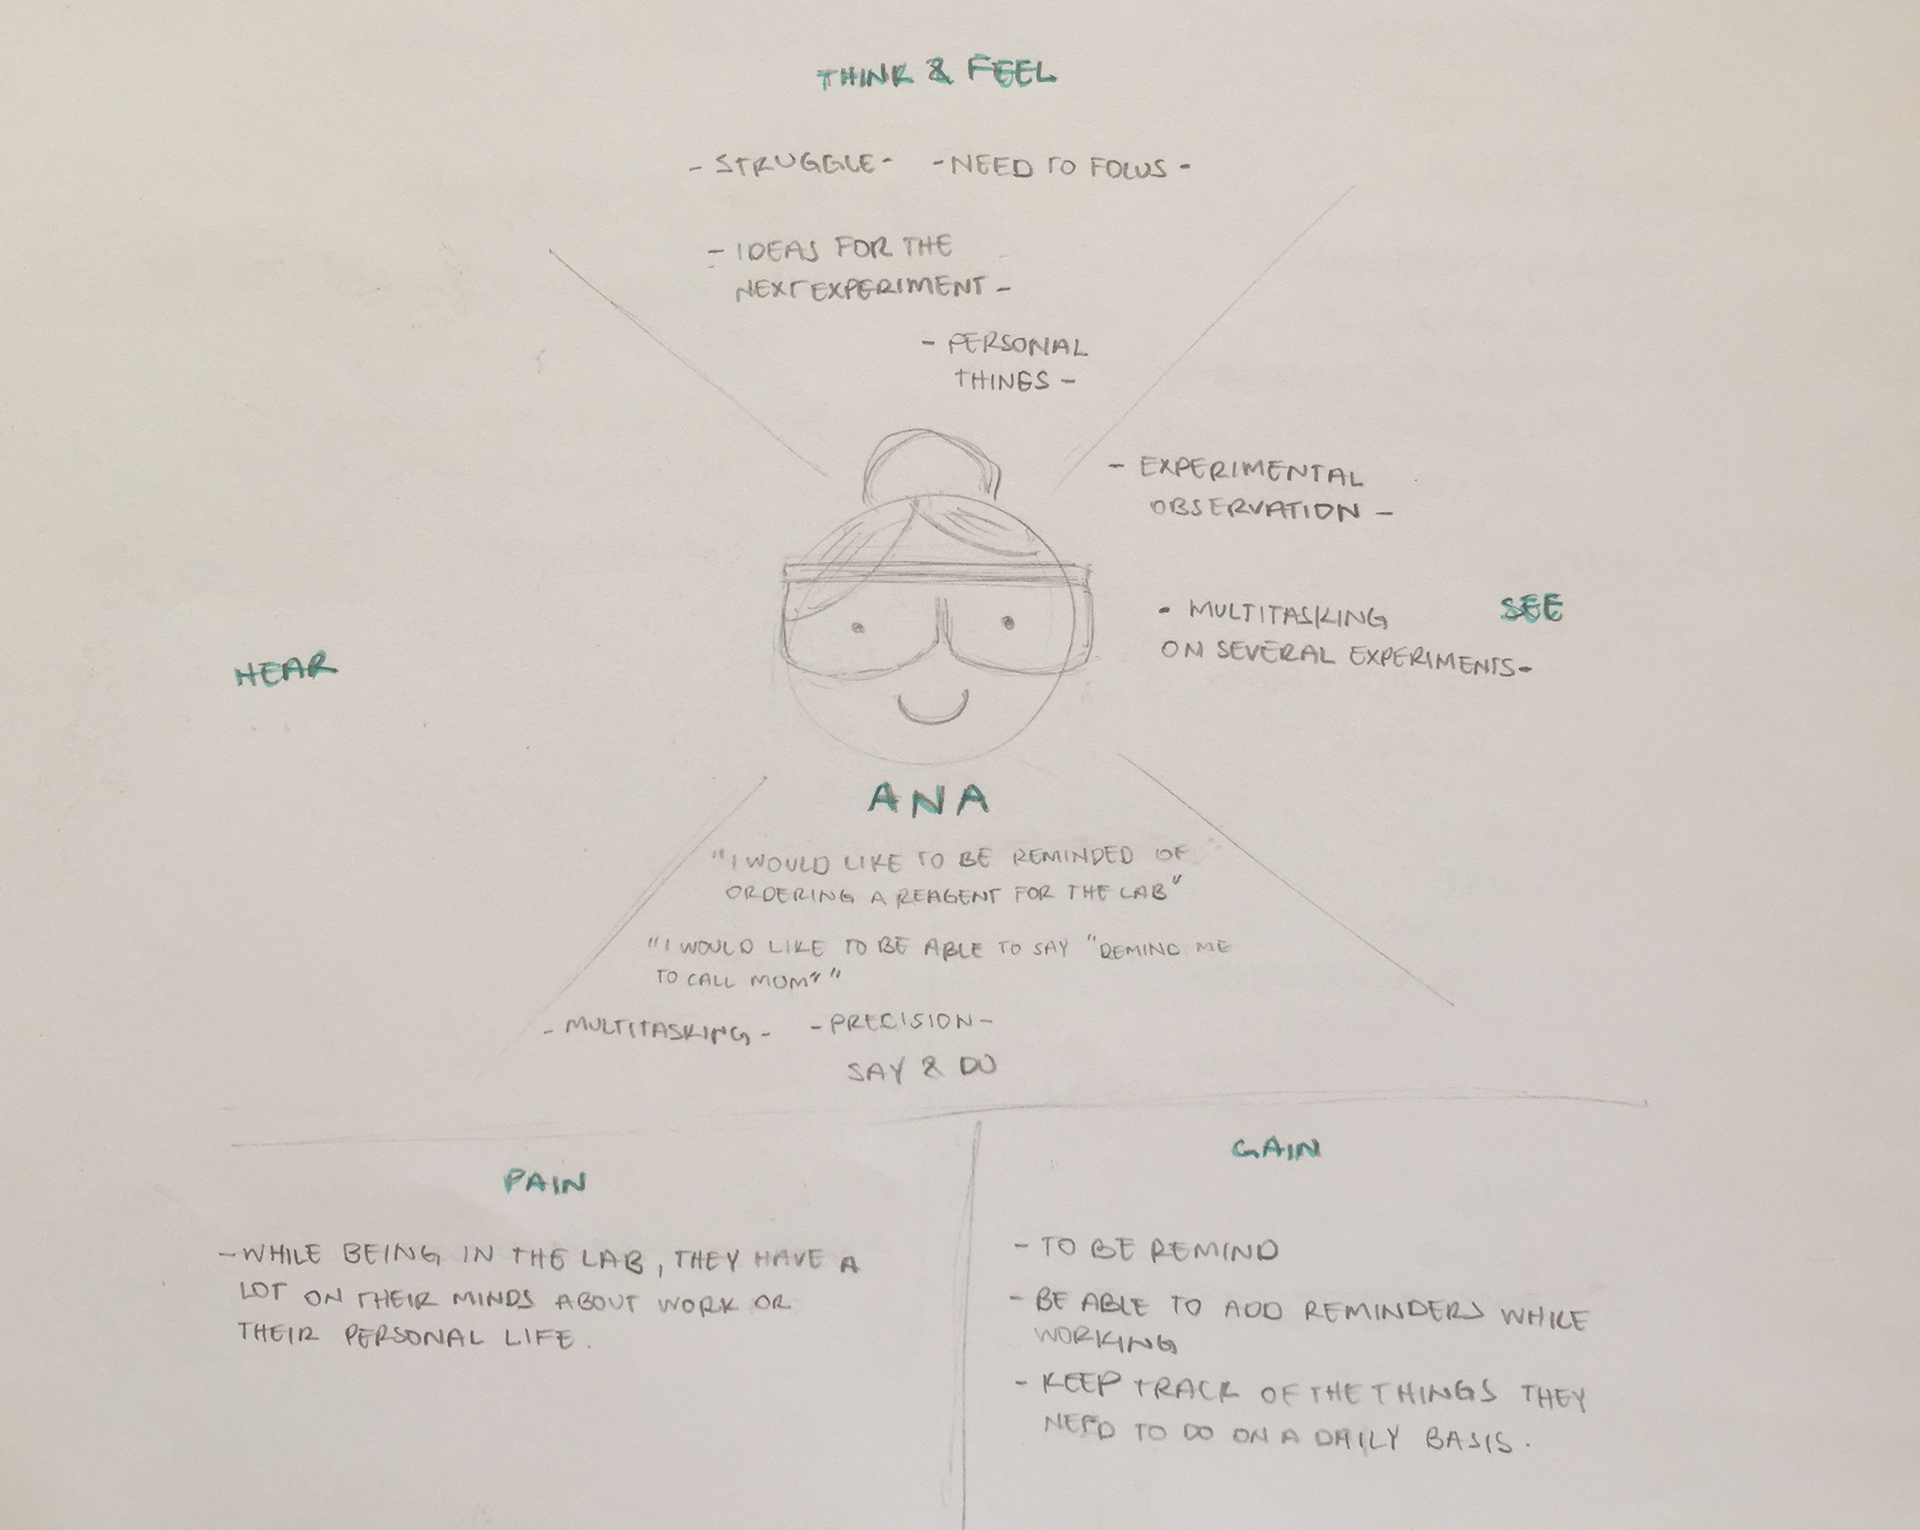 THINK & FEEL
- STRUGGLE - - NEED TO FOCUS -
- IDEAS FOR THE
NEXT EXPERIMENT -
- PERSONAL
THINGS -
- EXPERIMENTAL
OBSERVATION -
- MULTITASKING
ON SEVERAL EXPERIMENTS -
SEE
HEAR
ANA
"I WOULD LIKE TO BE REMINDED OF
ORDERING A REAGENT FOR THE LAB"
"I WOULD LIKE TO BE ABLE TO SAY "REMIND ME
TO CALL MUM" "
- MULTITASKING - - PRECISION -
SAY & DO
PAIN
- WHILE BEING IN THE LAB, THEY HAVE A
LOT ON THEIR MINDS ABOUT WORK OR
THEIR PERSONAL LIFE.
GAIN
- TO BE REMIND
- BE ABLE TO ADD REMINDERS WHILE
WORKING
- KEEP TRACK OF THE THINGS THEY
NEED TO DO ON A DAILY BASIS.